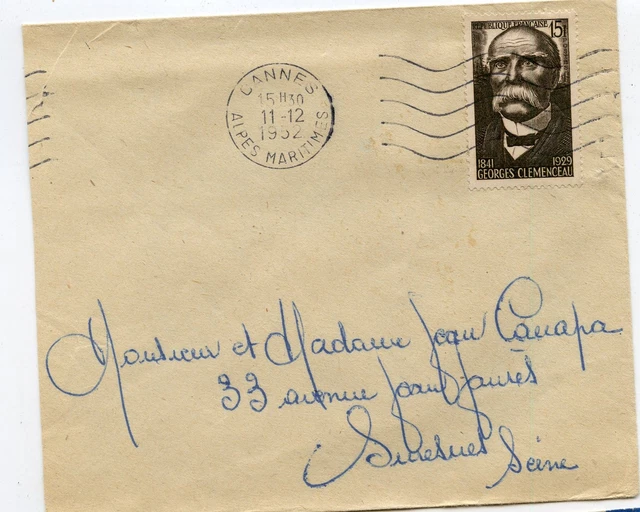 RÉPUBLIQUE FRANÇAISE 15F
CANNES
15H30
11-12
1952
ALPES MARITIMES
1841 1929
GEORGES CLEMENCEAU
Monsieur et Madame Jean Canapa
33 avenue Jean Jaurès
Suresnes Seine